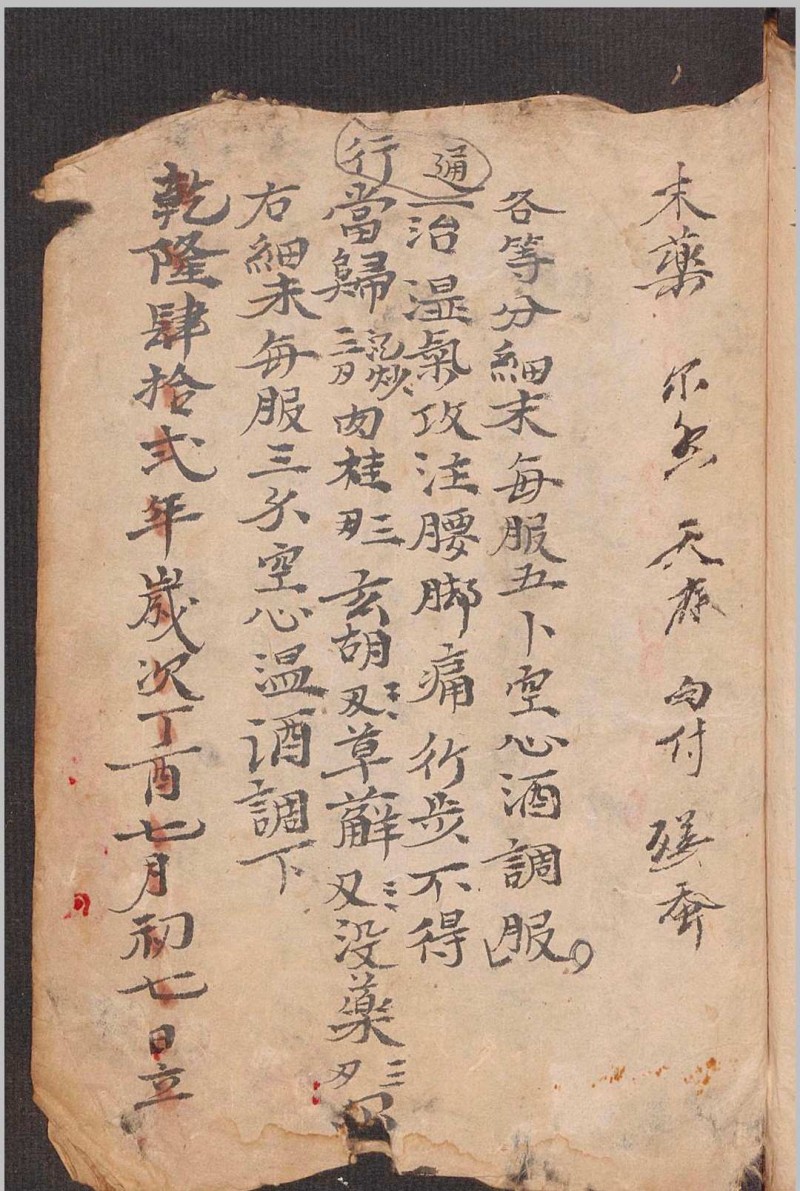 末藥 不 天麻 白付 殭蚕
各等分細末每服五卜空心酒調服
通一治湿氣攻注腰脚痛行步不得
行當歸三刃酒炒肉桂三刃玄胡三刃草薢三刃没藥三刃
右細末每服三分空心温酒調下
乾隆肆拾弍年歲次丁酉七月初七日立